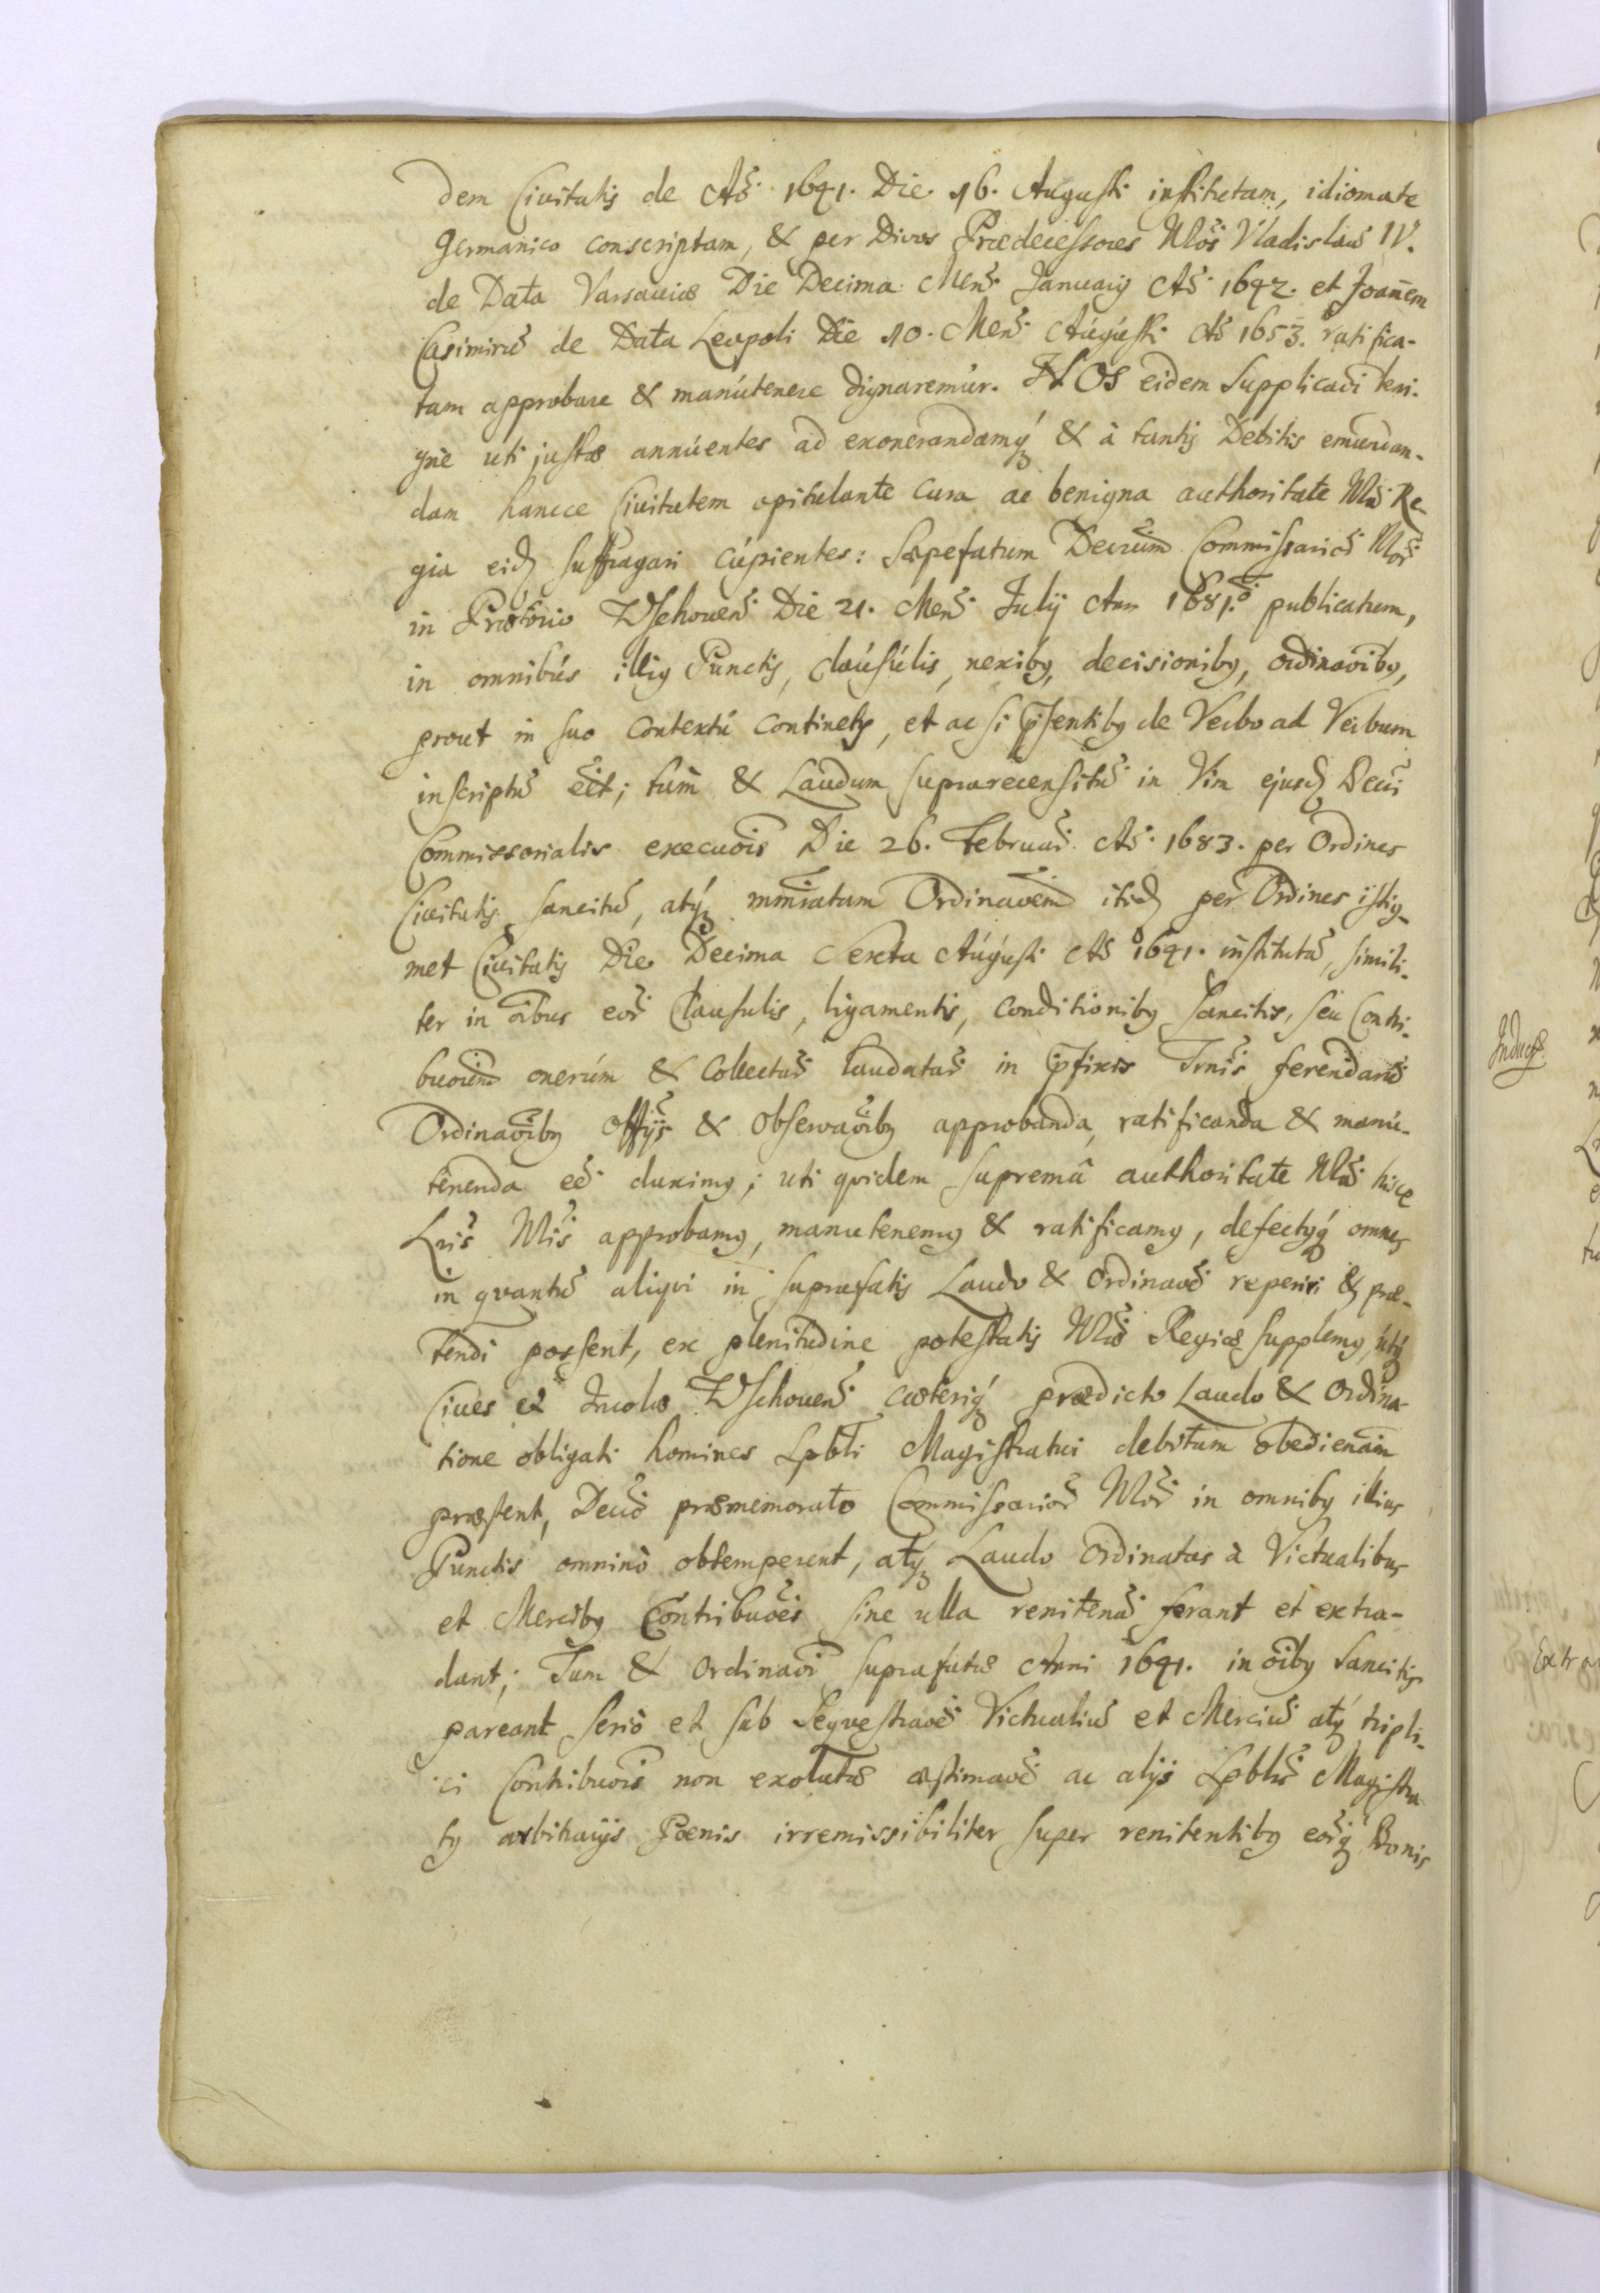 dem Civitatis de Aõ. 1641. Die 16. Augusti institutam, idiomate
Germanico conscriptam, & per Divos Prædecessores Nros Vladislaũ IV.
de Data Varsaviæ Die Decima Mens. Januarij Aõ. 1642. et Joañem
Casimirũ de Data Leopoli Die 10. Mens. Augusti Aõ 1653. ratifica-
tam approbare & manutenere dignaremur. NOS eidem Supplicaõi beni-
gnè uti justæ annuentes ad exonerandamq3 & à tantis Debitis emundan-
dam hancce Civitatem opitulante cura ac benigna authoritate Nrã Re-
gia eid. suffragari cupientes: Sæpefatum Decrũm Commissarioř Nroř
in Prætorio Wschoveñ. Die 21. Mens. Julij Ann 1681. publicatum,
in omnibus illi9 Punctis, clausulis, nexib9, decisionib9, ordinaõib9,
prout in suo contextu continet, et ac si p̃sentib9 de Verbo ad Verbum
inscriptũ eẽt; tum & Laudum suprarecensitũ in Vim ejusd. Decri
Commissorialis execuõis Die 26. Februař. Aõ. 1683. per Ordines
Civitatis sancitũ, atq3 m̃m̃ratam Ordinaõem itid. per Ordines isti9-
met Civitatis Die Decima Sexta Augusti Aõ 1641. institutã, simili-
ter in õibus eoř Clausulis, ligamentis, conditionib9 sancitis, seu Contri-
buõium onerum & Collectař laudatař in p̃fixis Trñis ferendarũ
Ordinaõib9 offijs & observaõib9 approbanda, ratificanda & manu-
tenenda eẽ. duxim9; uti qvidem supremâ authoritate Nrã hisce
Lris Nris approbam9, manutenem9 & ratificam9, defect9q3 omnes
in qvantũ aliqvi in suprafatis Laudo & Ordinaõe reperiri & præ-
tendi possent, ex plenitudine potestatis Nræ Regiæ supplem9, utq3
Cives et Incolæ Wschoveñ. cæteriq3 prædicto Laudo & Ordina-
tione obligati homines Spbli Magistratui debitam obedienãm
præstent, Decrõ præmemorato Commissarioř Nroř in omnib9 illius
Punctis omninò obtemperent, atq3 Laudo Ordinatas à Victualibus
et Mercib9 Contribuões sine ulla renitenã ferant et extra-
dant; Tum & Ordinaõi suprafatæ Anni 1641. in õib9 Sancitis
pareant seriò et sub Seqvestraõe Victualiũ et Merciũ atq3 tripli-
ci Contribuõis non exolutæ æstimaõe ac alijs Spblis Magistra
t9 arbitrarijs Pœnis irremissibiliter super renitentib9 eořq3 Bonis
Induc
Extra